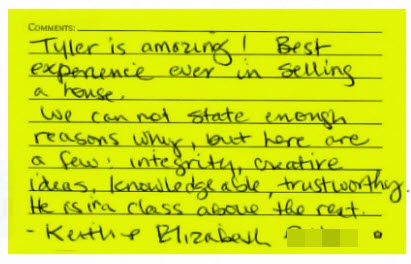 COMMENTS:
Tyler is amazing! Best
experience ever in selling
a house.
We can not state enough
reasons why, but here are
a few: integrity, creative
ideas, knowledgeable, trustworthy.
He is in a class above the rest.
- Keith & Elizabeth